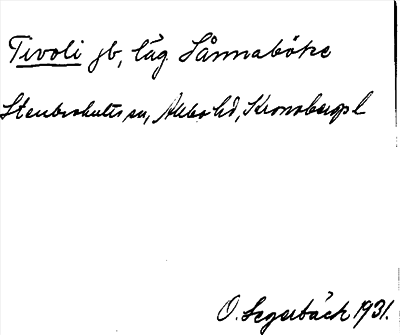 Tivoli jb, låg Sånnaböke
Stenbrohults sn, Allbo hd, Kronobergs l
O. Segerbäck 1931.